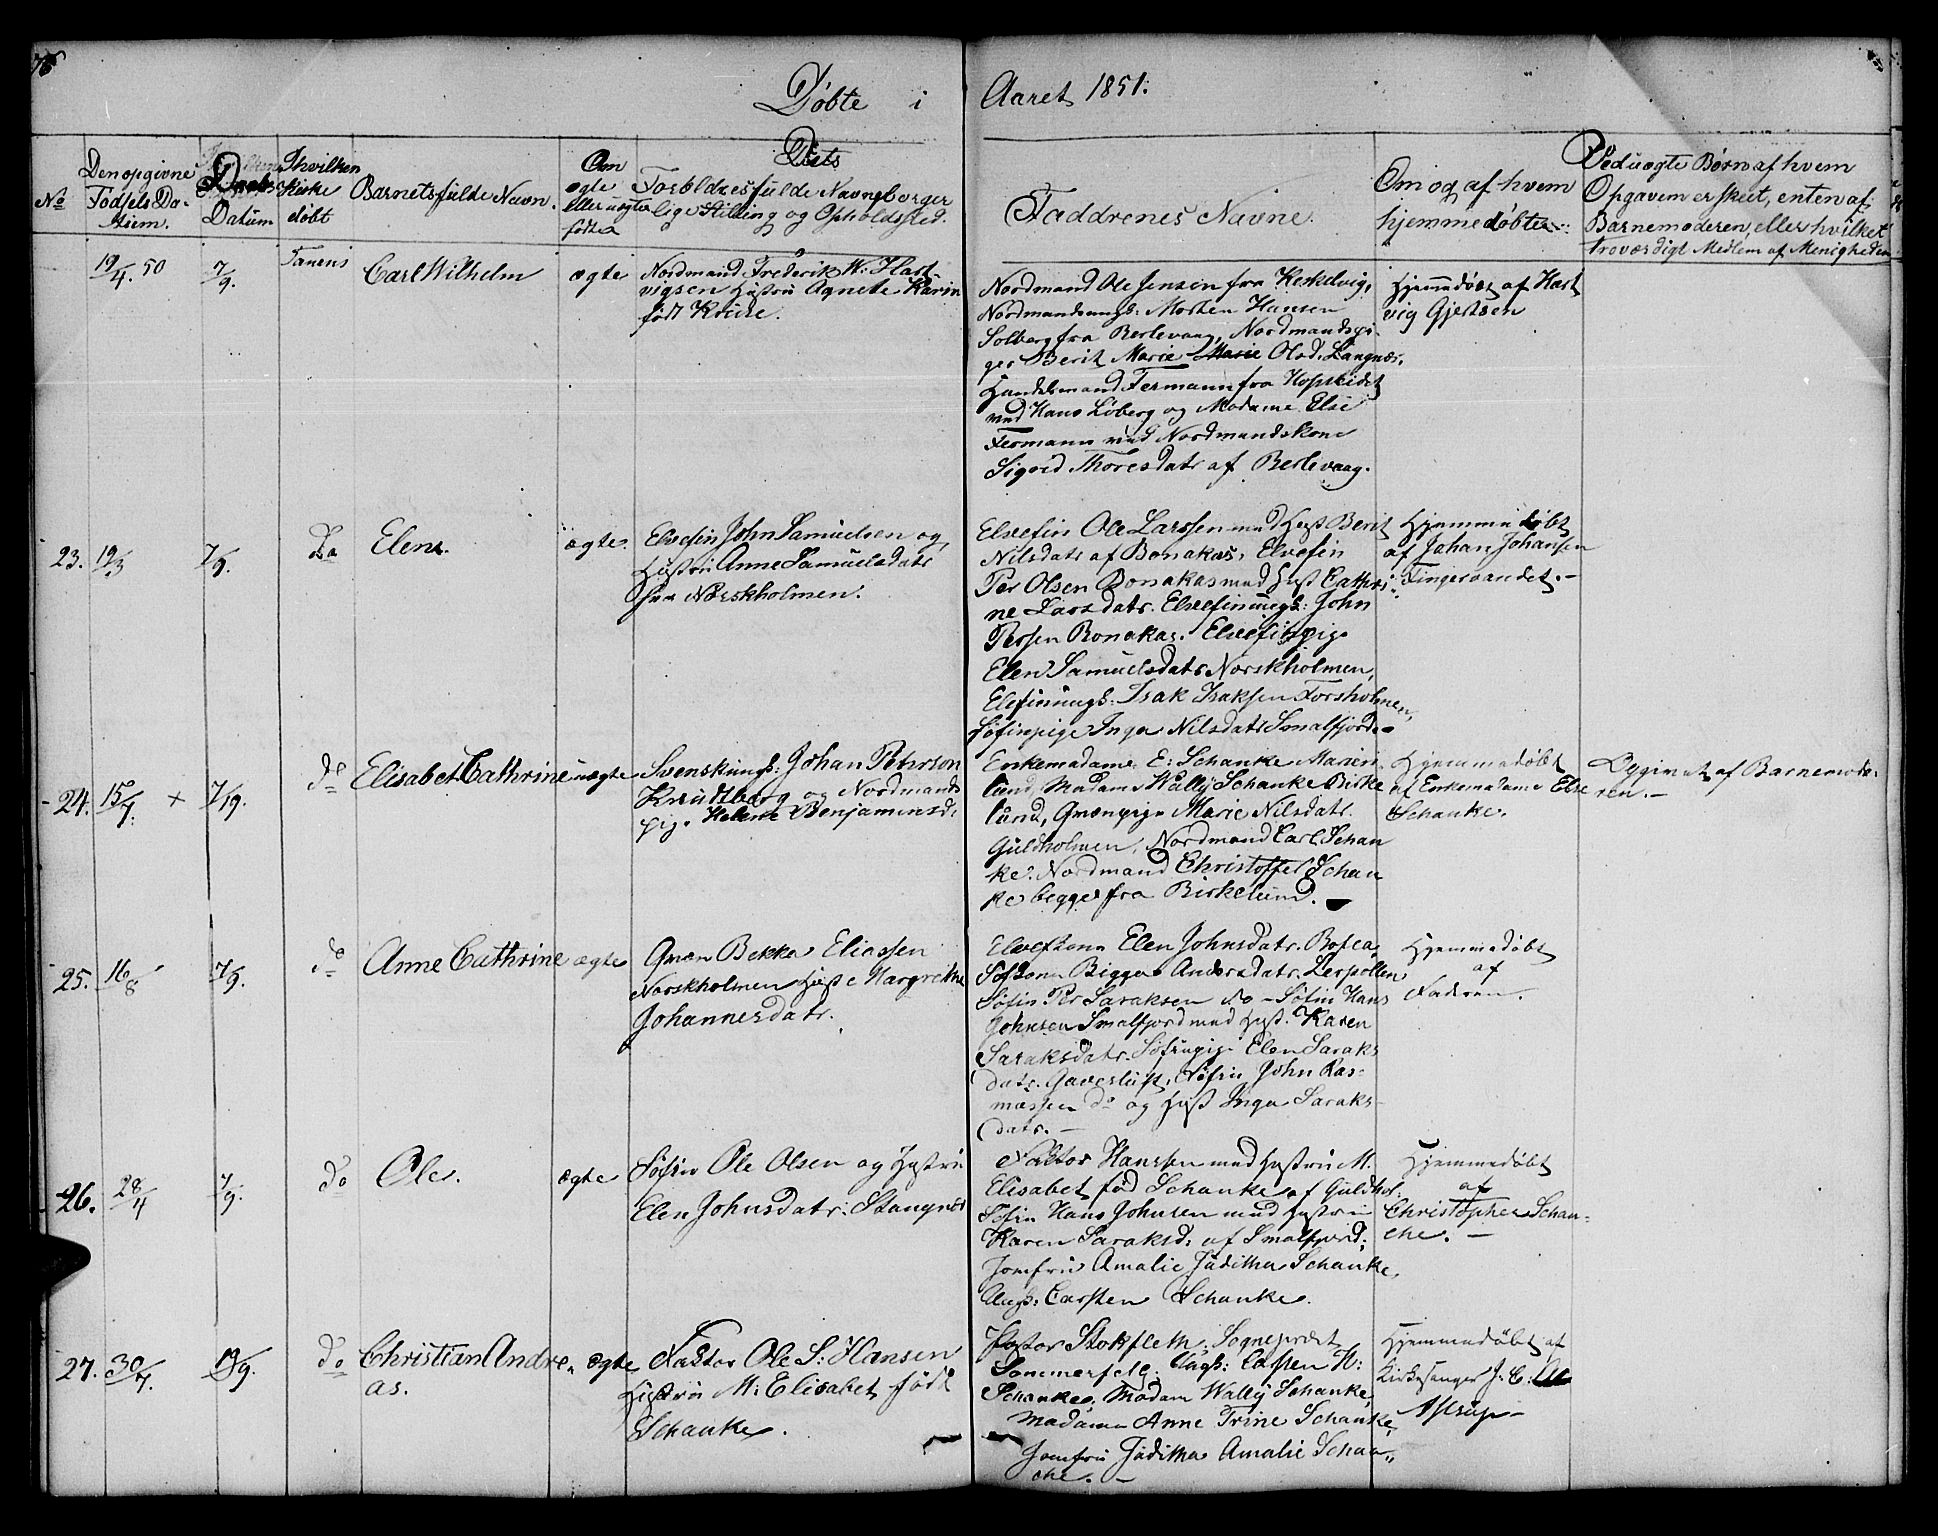 Døbte i Aaret 1851.
No
Den opgivne
Fødsels Da-
tum.
Daabs
Datum
I hvilken
Kirke
døbt
Barnets fulde Navn.
Om
ægte
eller uægte
født
Dets
Forældres fulde Navne, borger
lige Stilling og Opholdsted.
Faddrenes Navne.
Om og af hvem
hjemmedøbte
Ved uægte Børn af hvem
Opgaven er skeet, enten af
Barnemoderen, eller hvilket
troværdigt Medlem af Menigheden
19/4. 50
7/9.
Tanens
Carl Wilhelm
ægte
Nordmand Frederik W. Hart-
vigsen Hustru Agnete Karin
født Kruse.
Nordmand Ole Jensen fra Keskelvig,
Nordmandsungk: Morten Hansen
Solberg fra Berlevaag, Nordmandspi-
ger Berit Marie Marie Olsd. Langnæs,
Handelsmand Fermann fra Hopseidet
ved Hans Löberg og Madame Else
Fermann ved Nordmandskone
Sigrid Thoresdatr af Berlevaag.
Hjemmdøbt af Hart
vig Gjertsen
23.
19/3
7/9.
Do
Elen.
ægte.
Elvefin John Samuelsen og
Hustru Anne Samuelsdatr
fra Norskholmen.
Elvefin Ole Larssen med Hust Berit
Nilsdatr af Bonakas, Elvefin
Per Olsen Bonakas med Hust Cathri-
ne Larsdatr. Elvefinungk: John
Persen Bonakas. Elvefinpige
Elen Samuelsdatr Norskholmen,
Elvefinungk: Isak Isaksen Forsholmen,
Söfinpige Inga Nilsdatr Smalfjord.
Hjemmedøbt
af Johan Johansen
Fingervandet.-
24.
15/4.
+
7/9.
do
Elisabet Cathrine
uægte
Svenskungk: Johan Peterson
Krudtberg og Nordmands
pige Helene Benjaminsd.
Enkemadame E: Schanke Marien
lund, Madame Wally Schanke Birke
lund, Qvænpige Marie Nilsdatr.
Guldholmen, Nordmand Carl Schan
ke. Nordmand Christoffer Schan
ke begge fra Birkelund.
Hjemmedøbt
af Enkemadame Else
Schanke.
Opgivet af Barnemode-
ren.-
25.
16/8
7/9.
do
Anne Cathrine
ægte
Qvæn Bekka Eliassen
Norskholmen Hust Margrethe
Johannesdatr.
Elvefkone Elen Johnsdatr. Bosca,
Söfkone Bigga Andersdatr. Lerpollen
Söfin Per Saraksen do - Söfin Hans
Johnsen Smalfjord med Hust. Karen
Saraksdatr. Söfinpige Elen Saraks
datr. Gavesluft, Söfin John Ras-
mussen do og Hust Inga Saraks-
datr. -
Hjemmedøbt
af
Faderen.
26.
28/4
7/9.
do
Ole.
ægte
Söfin Ole Olsen og Hustru
Elen Johnsdatr. Stangnæs
Factor Hanssen med Hustru M.
Elisabet fød Schanke af Guldhol.
Söfin Hans Johnsen med Hustru
Karen Saraksd: af Smalfjord,
Jomfru Amalie Juditha Schanke,
Ungk: Carsten Schanke.
Hjemmedøbt
af
Christopher Schan-
che. -
27.
30/7.
19/9.
do
Christian Andre-
as.
ægte
Factor Ole S: Hansen
Hustru M: Elisabet født
Schanke.
Pastor Stokfleth, Sognepræst
Sommerfelt. Ungk: Carsten H:
Schanke, Madam Wally Schanke,
Madame Anne Trine Schanke,
Jomfru Juditha Amalie Schan-
che. -
Hjemmedøbt af
Kirkesanger J. C:
Astrup -